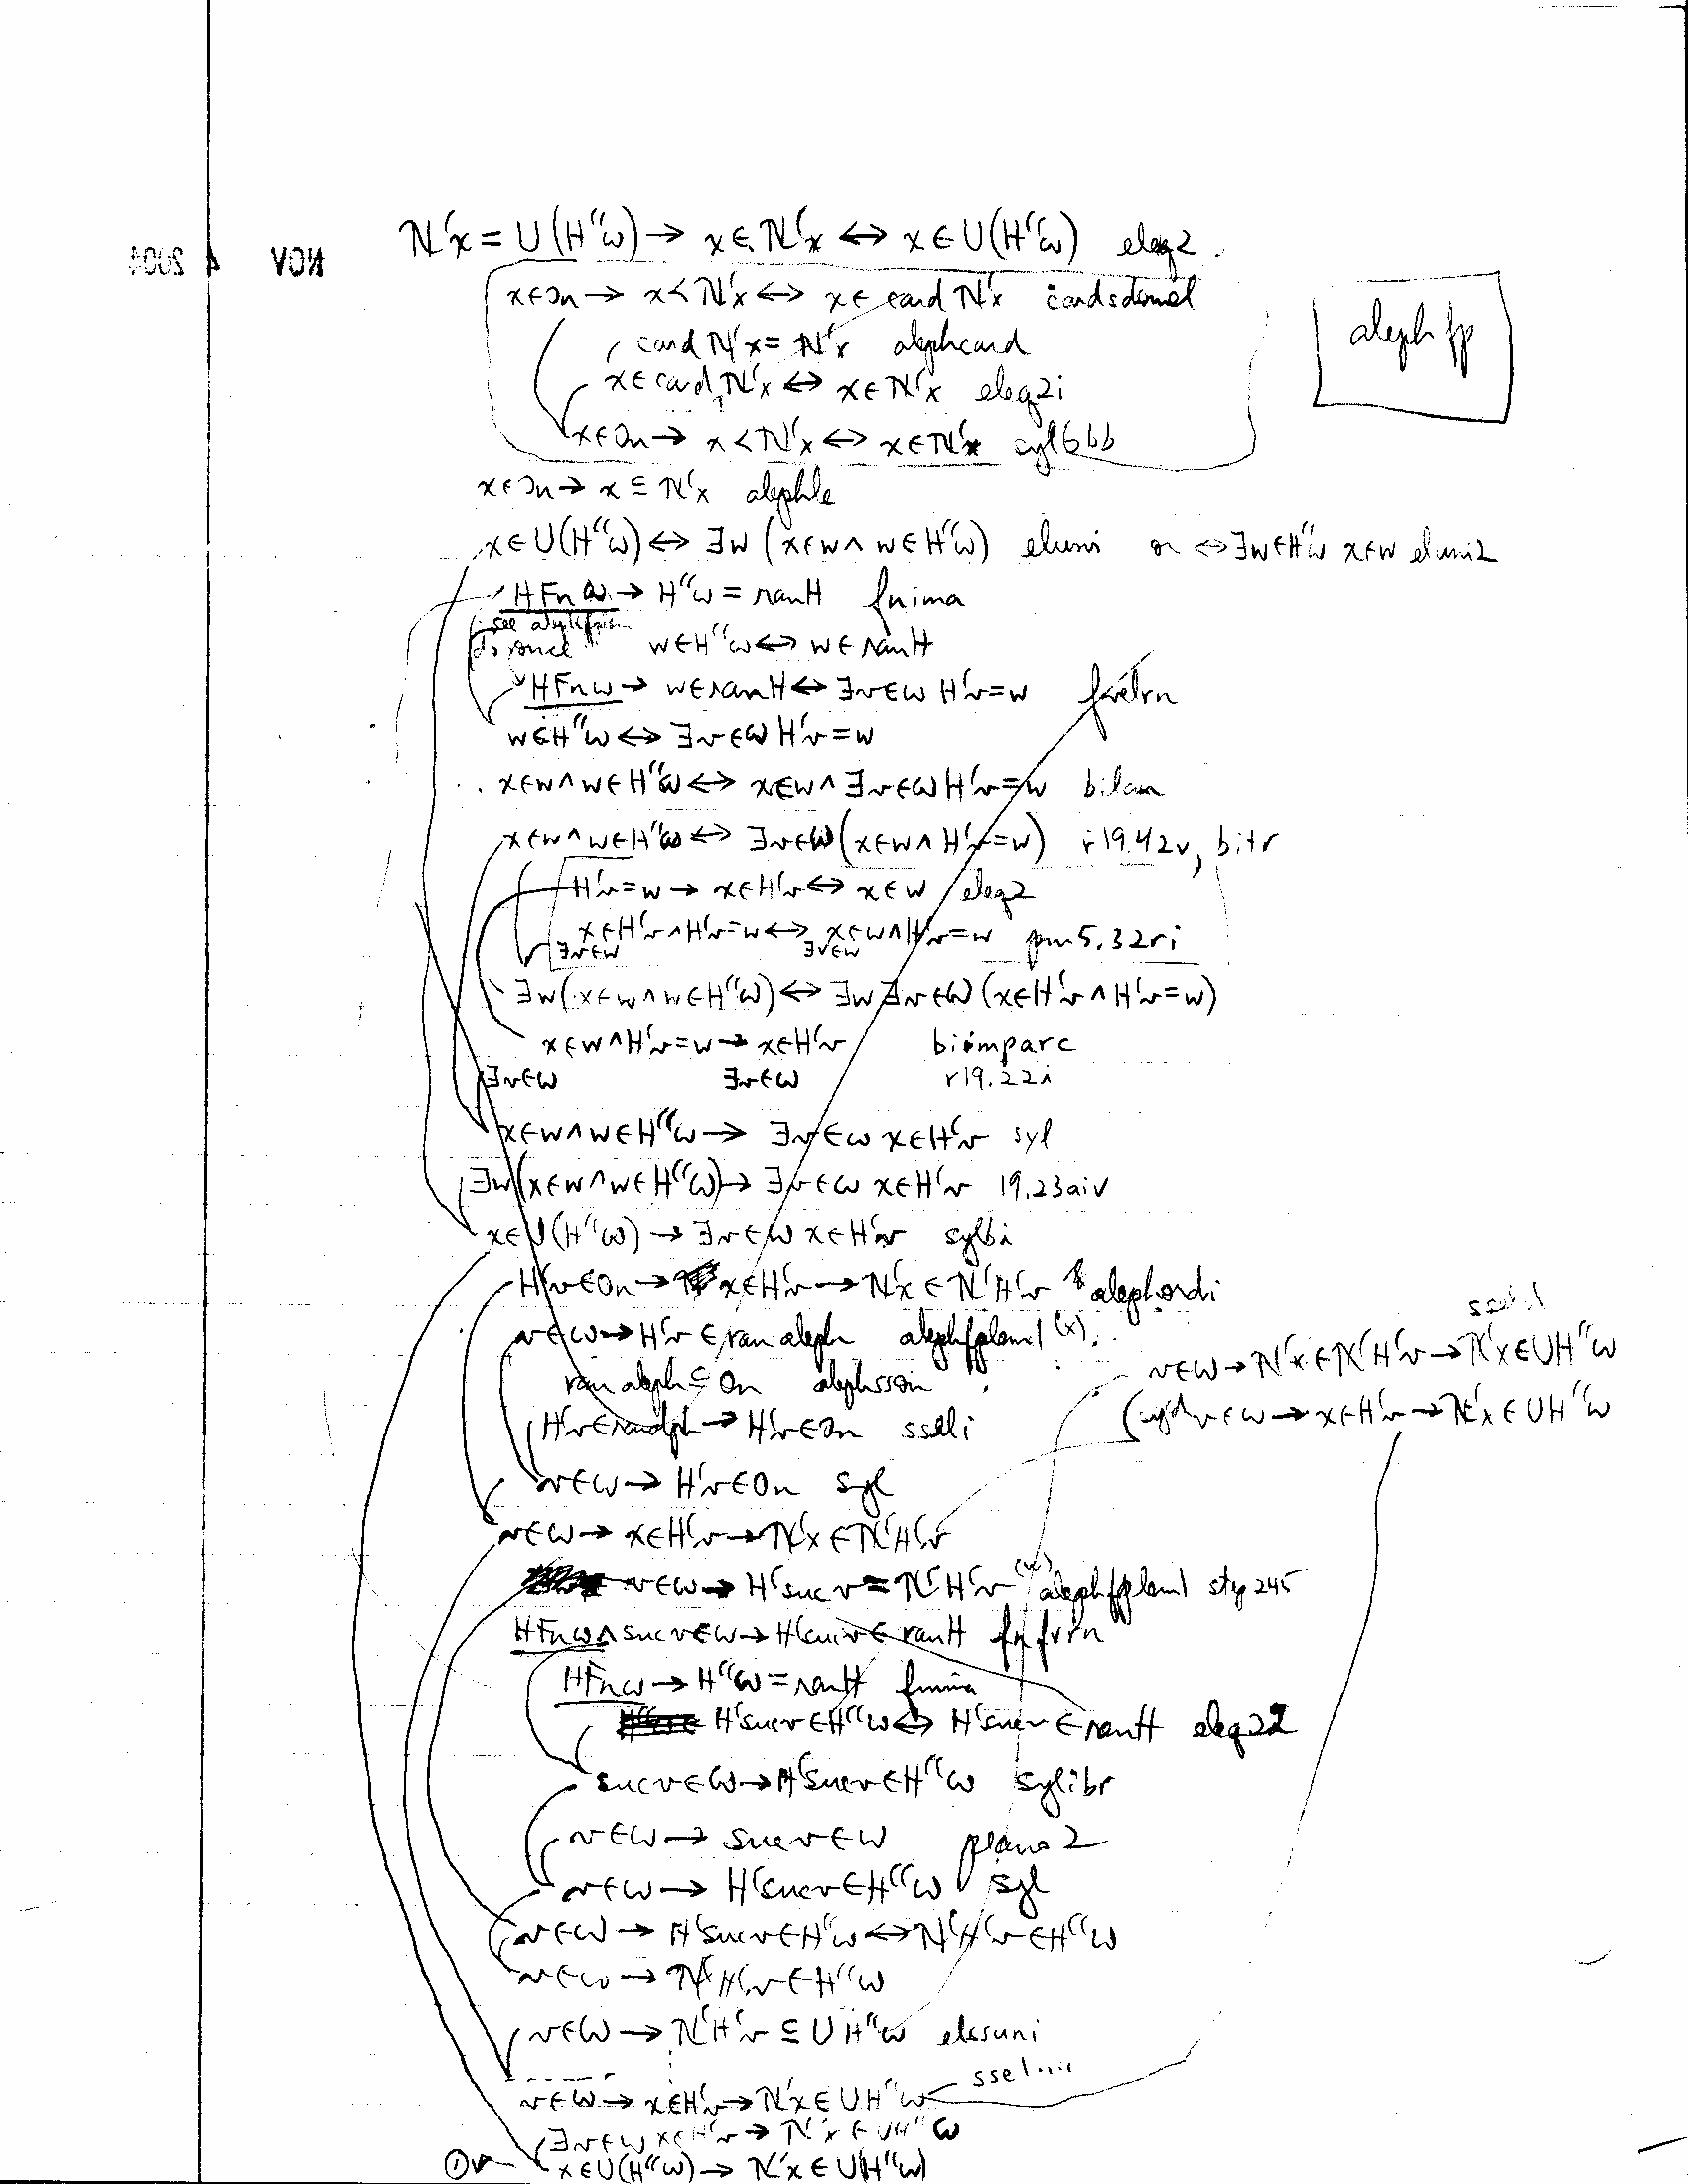 NOV 4 2004
ℵ‘x = ∪(H“ω) → x ∈ ℵ‘x ↔ x ∈ ∪(H“ω) eleq2
x∈On → x < ℵ‘x ↔ x ∈ card ℵ‘x cardsdomel
card ℵ‘x = ℵ‘x alephcard
x ∈ card ℵ‘x ↔ x ∈ ℵ‘x eleq2i
x∈On → x < ℵ‘x ↔ x∈ℵ‘x syl6bb
aleph fp
x∈On → x ⊆ ℵ‘x alephle
x∈∪(H“ω) ↔ ∃w (x∈w ∧ w∈H“ω) eluni or ↔ ∃w∈H“ω x∈w eluni2
H Fn ω → H“ω = ran H fnima
see
do once w∈H“ω ↔ w∈ran H
H Fn ω → w∈ran H ↔ ∃v∈ω H‘v=w fvelrn
w∈H“ω ↔ ∃v∈ω H‘v=w
x∈w ∧ w∈H“ω ↔ x∈w ∧ ∃v∈ω H‘v=w bilan
x∈w ∧ w∈H“ω ↔ ∃v∈ω (x∈w ∧ H‘v=w) r19.42v, bitr
H‘v=w → x∈H‘v ↔ x∈w eleq2
x∈H‘v ∧ H‘v=w ↔ x∈w ∧ H‘v=w pm5.32ri
∃v∈ω ∃v∈ω
∃w(x∈w ∧ w∈H“ω) ↔ ∃w ∃v∈ω (x∈H‘v ∧ H‘v=w)
x∈w ∧ H‘v=w → x∈H‘v biimparc
∃v∈ω ∃v∈ω r19.22i
x∈w ∧ w∈H“ω → ∃v∈ω x∈H‘v syl
∃w(x∈w ∧ w∈H“ω) → ∃v∈ω x∈H‘v 19.23aiv
x∈∪(H“ω) → ∃v∈ω x∈H‘v sylbi
H‘v∈On → x∈H‘v → ℵ‘x ∈ ℵ‘H‘v alephordi
v∈ω → H‘v ∈ ran aleph alephfplem1 (x)
ran aleph ⊆ On alephsson
H‘v∈ran aleph → H‘v∈On sseli
v∈ω → H‘v∈On syl
v∈ω → x∈H‘v → ℵ‘x ∈ ℵ‘H‘v
v∈ω → ℵ‘x∈ℵ‘H‘v → ℵ‘x∈∪H“ω
(syld v∈ω → x∈H‘v → ℵ‘x∈∪H“ω
v∈ω → H‘suc v = ℵ‘H‘v (x) alephfplem1 step 245
H Fn ω ∧ suc v∈ω → H‘suc v ∈ ran H fnfvrn
H Fn ω → H“ω = ran H fnima
H‘suc v∈H“ω ↔ H‘suc v ∈ ran H eleq22
suc v∈ω → H‘suc v∈H“ω sylibr
v∈ω → suc v∈ω peano2
v∈ω → H‘suc v∈H“ω syl
v∈ω → H‘suc v∈H“ω ↔ ℵ‘H‘v∈H“ω
v∈ω → ℵ‘H‘v∈H“ω
v∈ω → ℵ‘H‘v ⊆ ∪H“ω elssuni
v∈ω → x∈H‘v → ℵ‘x∈∪H“ω ssel....
∃v∈ω x∈H‘v → ℵ‘x∈∪H“ω
① x∈∪(H“ω) → ℵ‘x∈∪(H“ω)